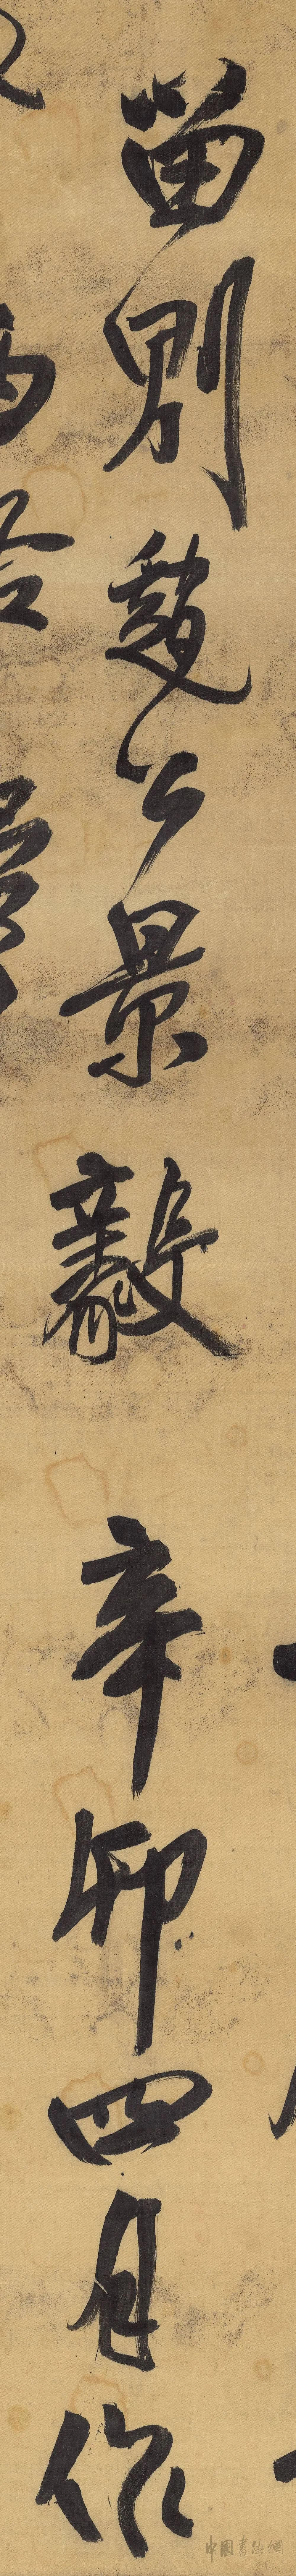 留別夔公景毅 辛卯四月作
中國書法網